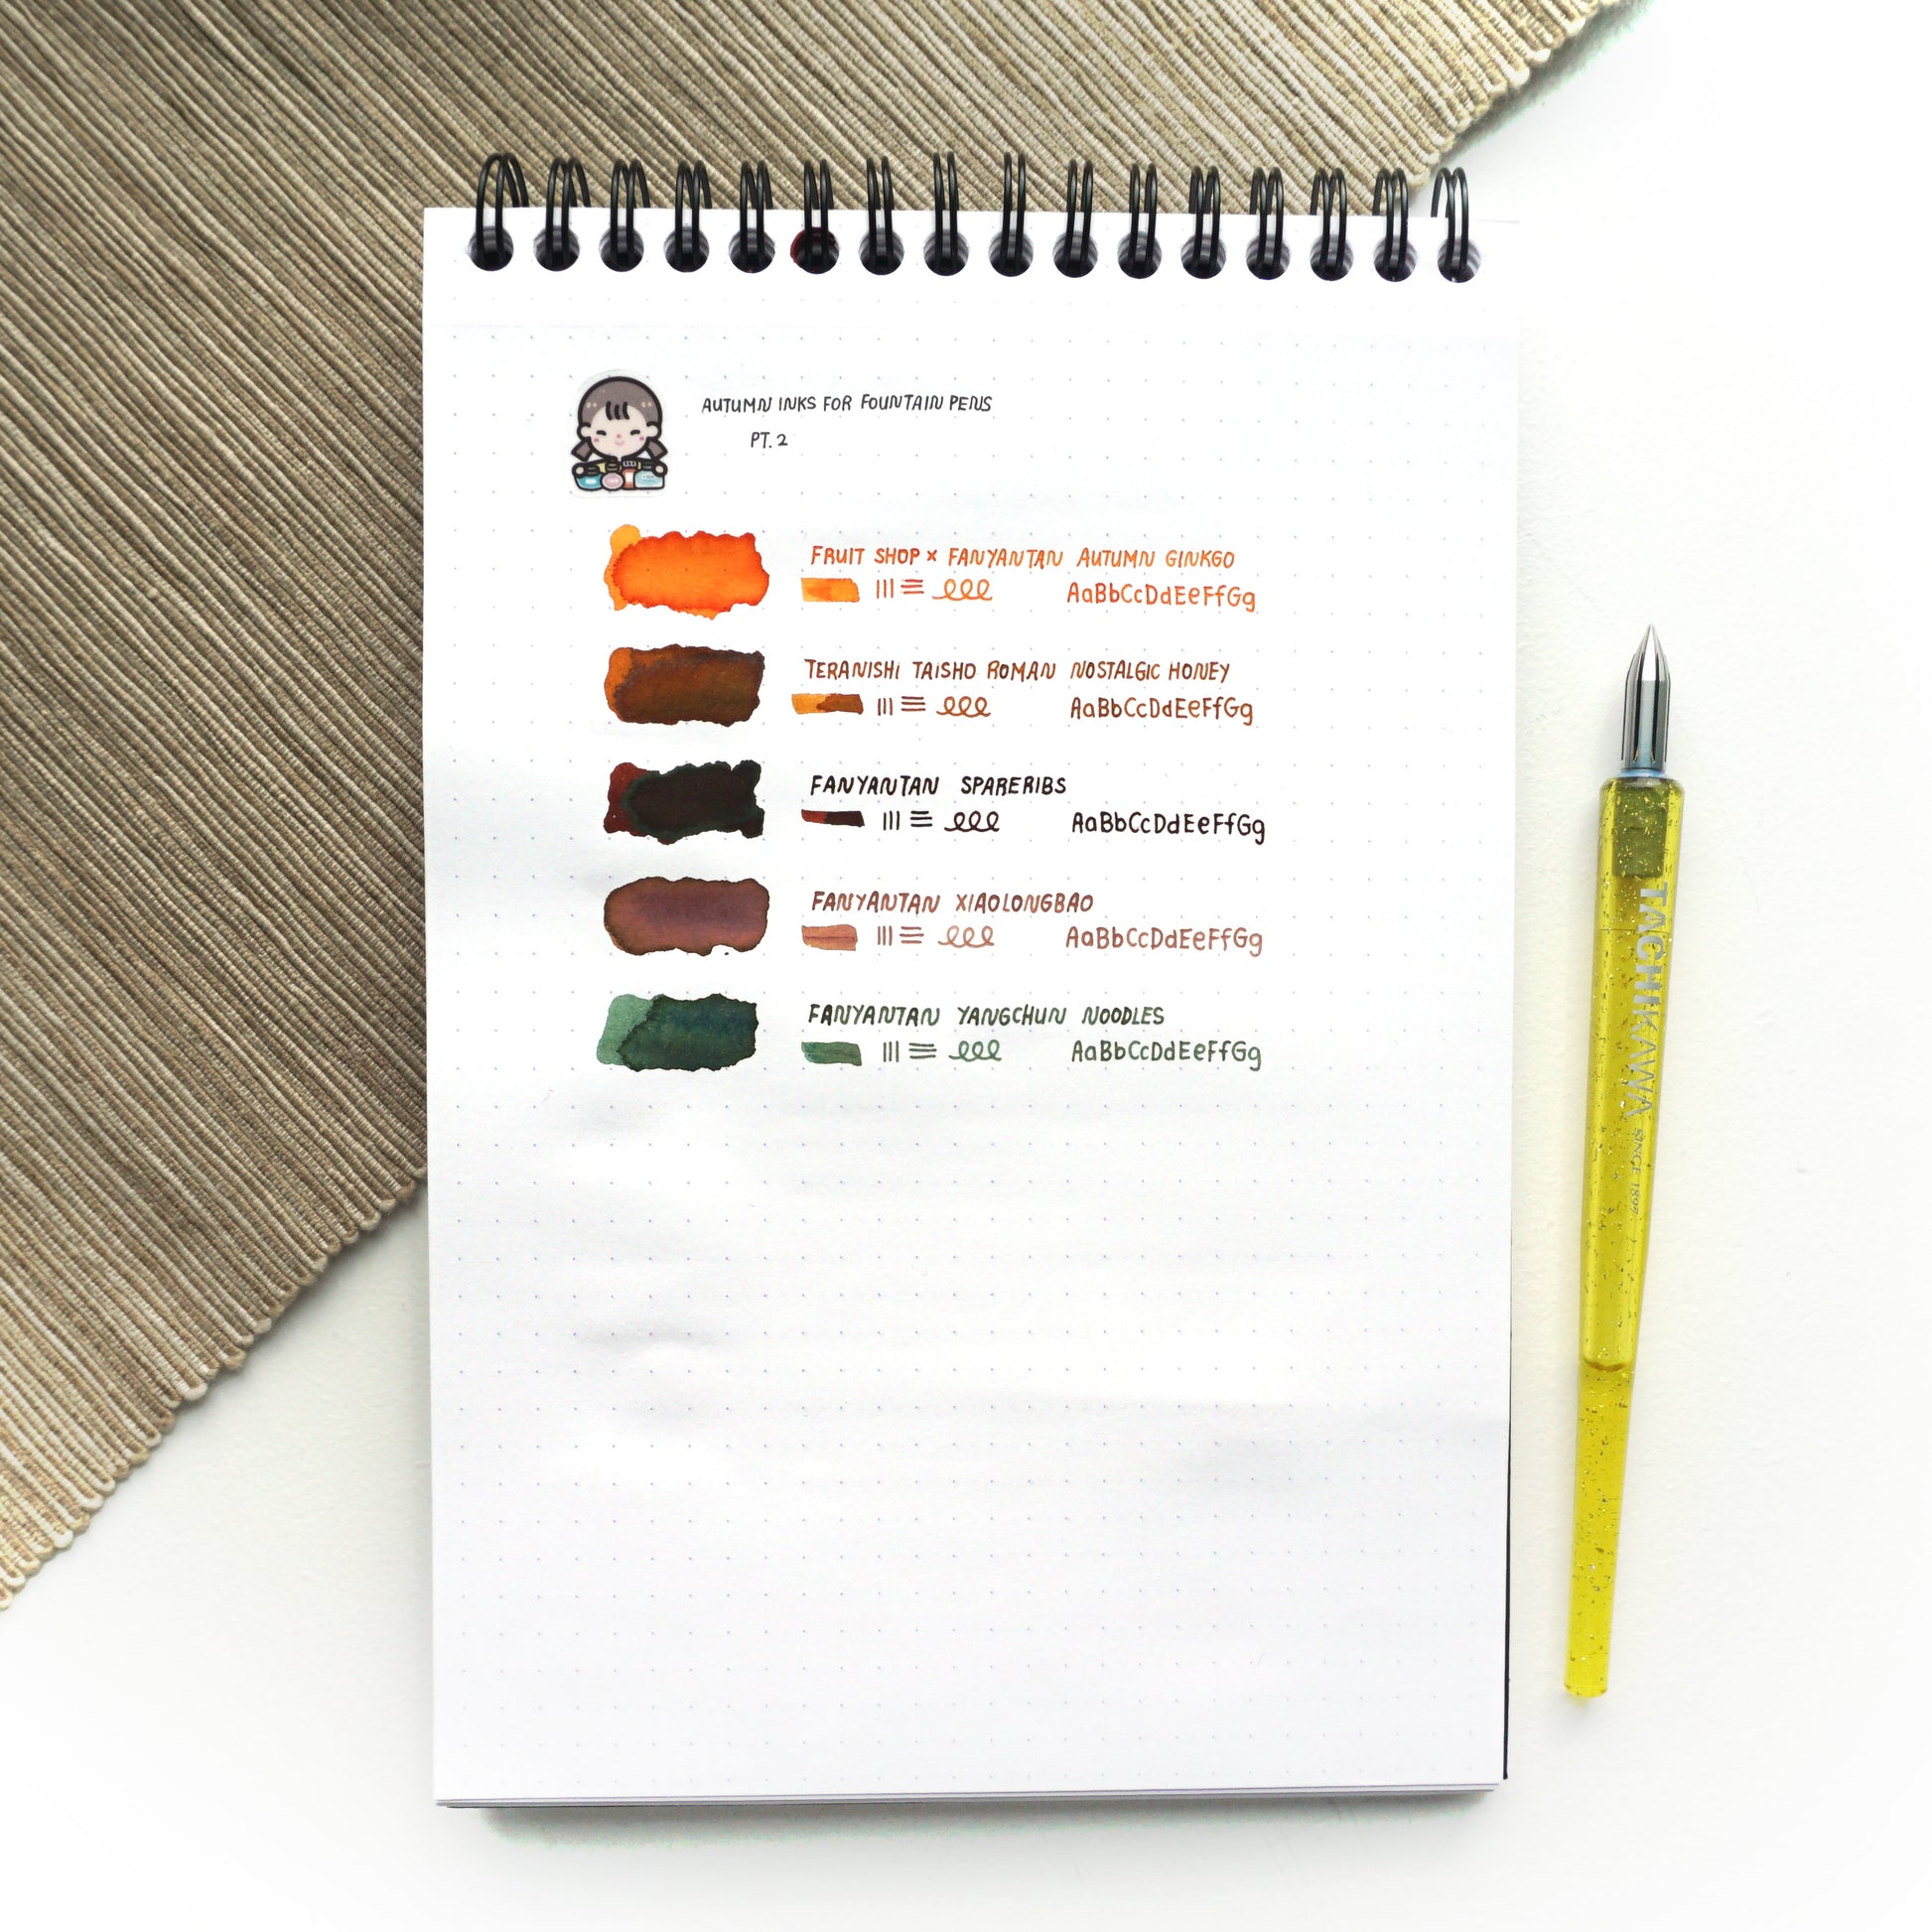 AUTUMN INKS FOR FOUNTAIN PENS
PT. 2
FRUIT SHOP × FANYANTAN AUTUMN GINKGO
AaBbCcDdEeFfGg
TERANISHI TAISHO ROMAN NOSTALGIC HONEY
AaBbCcDdEeFfGg
FANYANTAN SPARERIBS
AaBbCcDdEeFfGg
FANYANTAN XIAOLONGBAO
AaBbCcDdEeFfGg
FANYANTAN YANGCHUN NOODLES
AaBbCcDdEeFfGg
TACHIKAWA SINCE